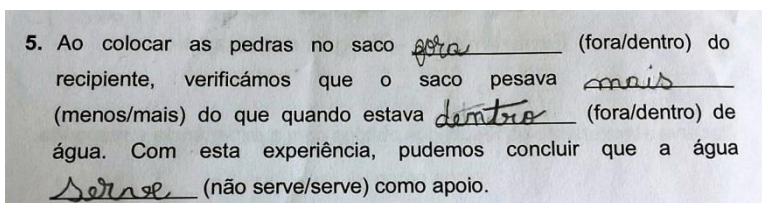 5. Ao colocar as pedras no saco fora (fora/dentro) do
recipiente, verificámos que o saco pesava mais
(menos/mais) do que quando estava dentro (fora/dentro) de
água. Com esta experiência, pudemos concluir que a água
serve (não serve/serve) como apoio.